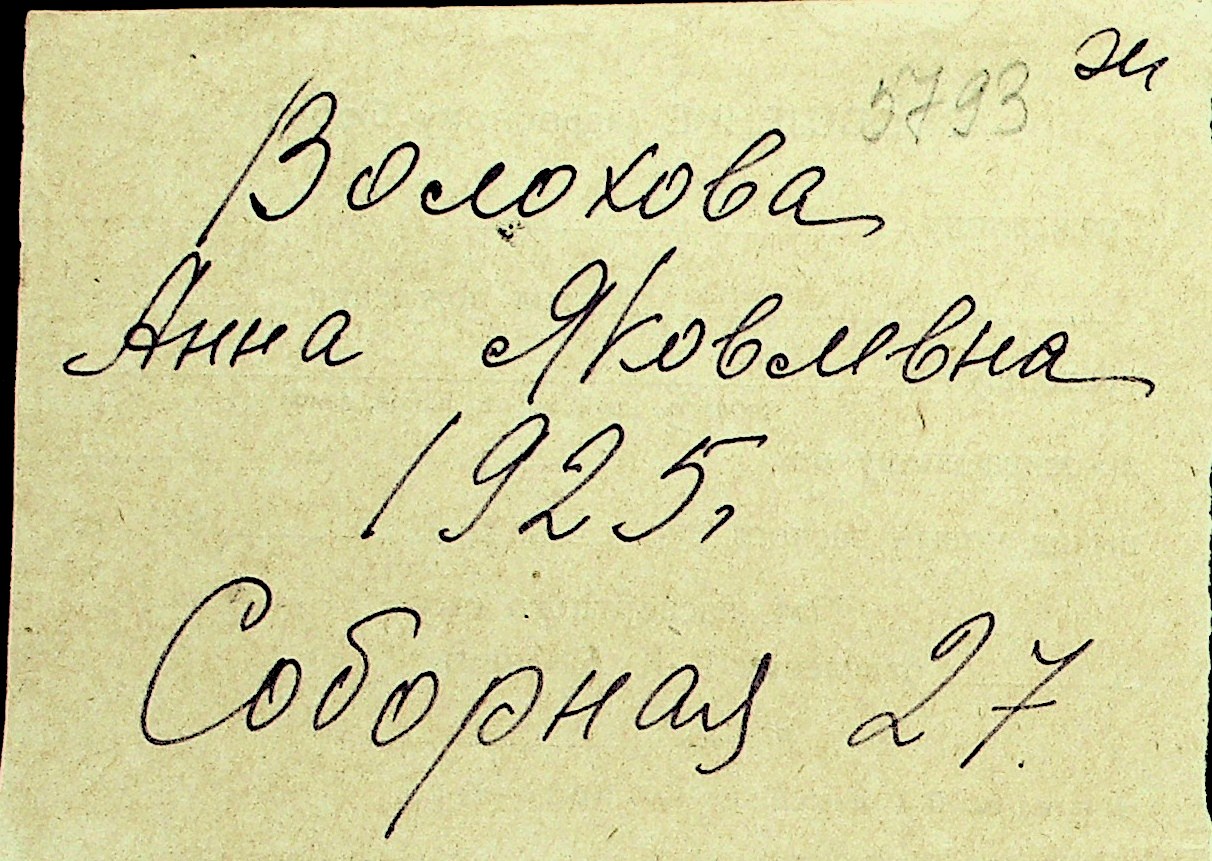 5793 ж
Волохова
Анна Яковлевна
1925г
Соборная 27.